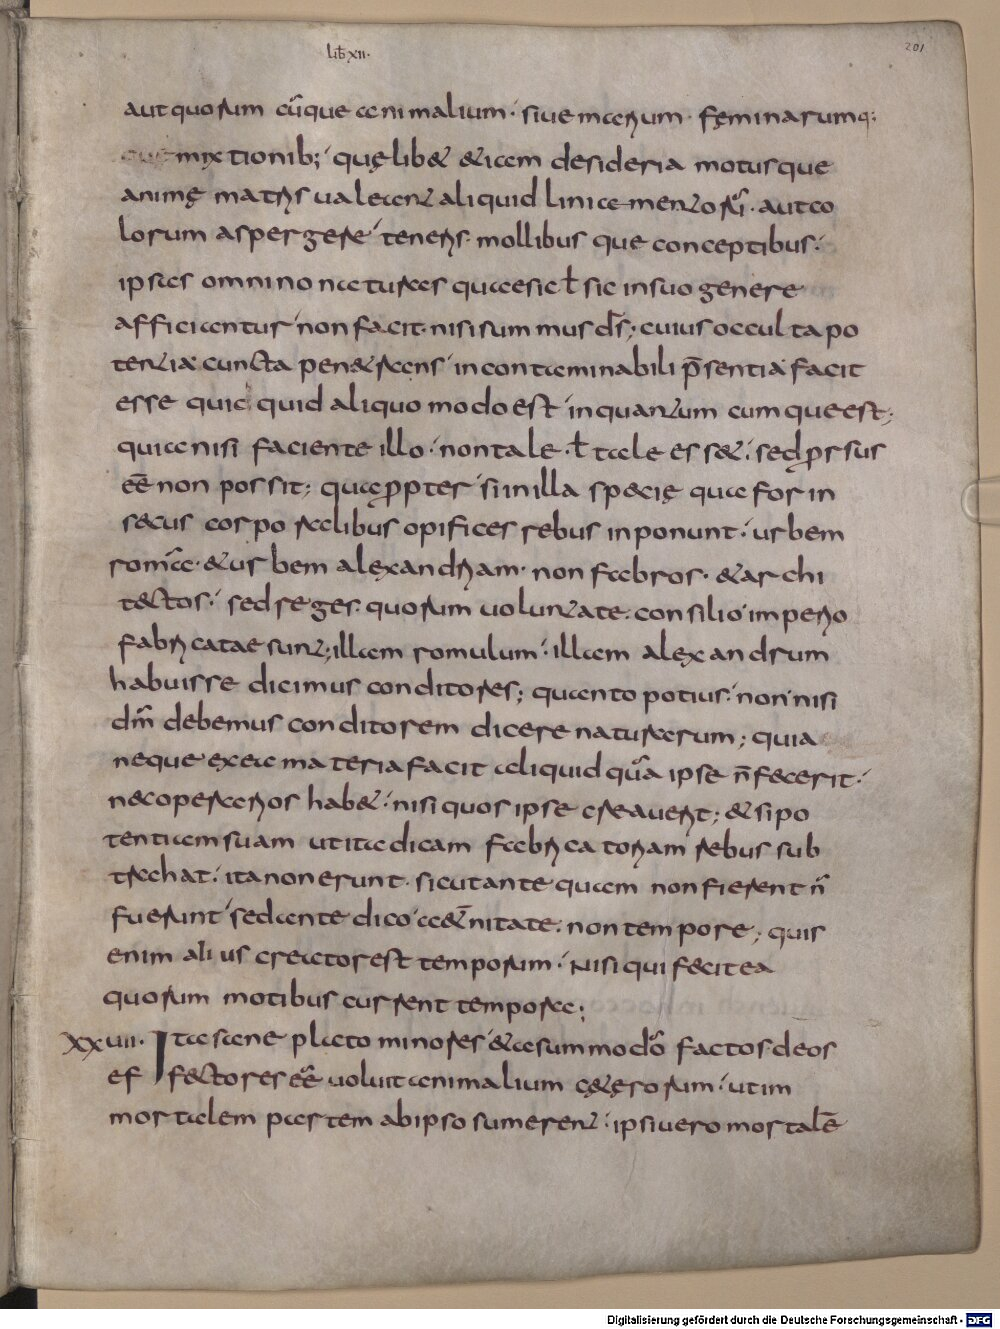 lib xii·
201
aut quorum cūque animalium· siue marium· feminarumq;
mixtionib; quęlib& &iam desideria motusque
animę matris ualeant aliquid liniamentorū· aut co
lorum aspergere teneris· mollibus que conceptibus·
ipsas omnino naturas quae sic ł sic in suo genere
afficiantur non facit· nisi summus d̄s; cuius occulta po
tentia cuncta pen&rans incontaminabili p̄sentia facit
esse quic quid aliquo modo est in quantum cum que est;
quia nisi faciente illo· non tale· ł tale ess&· sed prorsus
eē non possit; qua propter si in illa specię qua forin
secus corporalibus opifices rebus inponunt· urbem
romā· & urbem alexandriam· non fabros· & archi
tectos· sed reges· quorum uoluntate· consilio imperio
fabricatae sunt; illam romulum· illam alexandrum
habuisse dicimus conditores; quanto potius· non nisi
dm̄ debemus conditorem dicere naturarum; quia
neque ex ea materia facit aliquid quā ipse n̄ fecerit·
nec operarios hab&· nisi quos ipse creauerit; & si po
tentiam suam ut ita dicam fabricatoriam rebus sub
trahat· ita non erunt· sicut antequam non fierent n̄
fuerunt sed ante dico a&ernitate· non tempore; quis
enim alius creator est temporum· nisi qui fecit ea
quorum motibus current tempora;
xxuii· Ita sane plato minores & a summo dō factos deos
effectores eē uoluit animalium c&erorum· ut im
mortalem partem ab ipso sumerent· ipsi uero mortalē
Digitalisierung gefördert durch die Deutsche Forschungsgemeinschaft - DFG